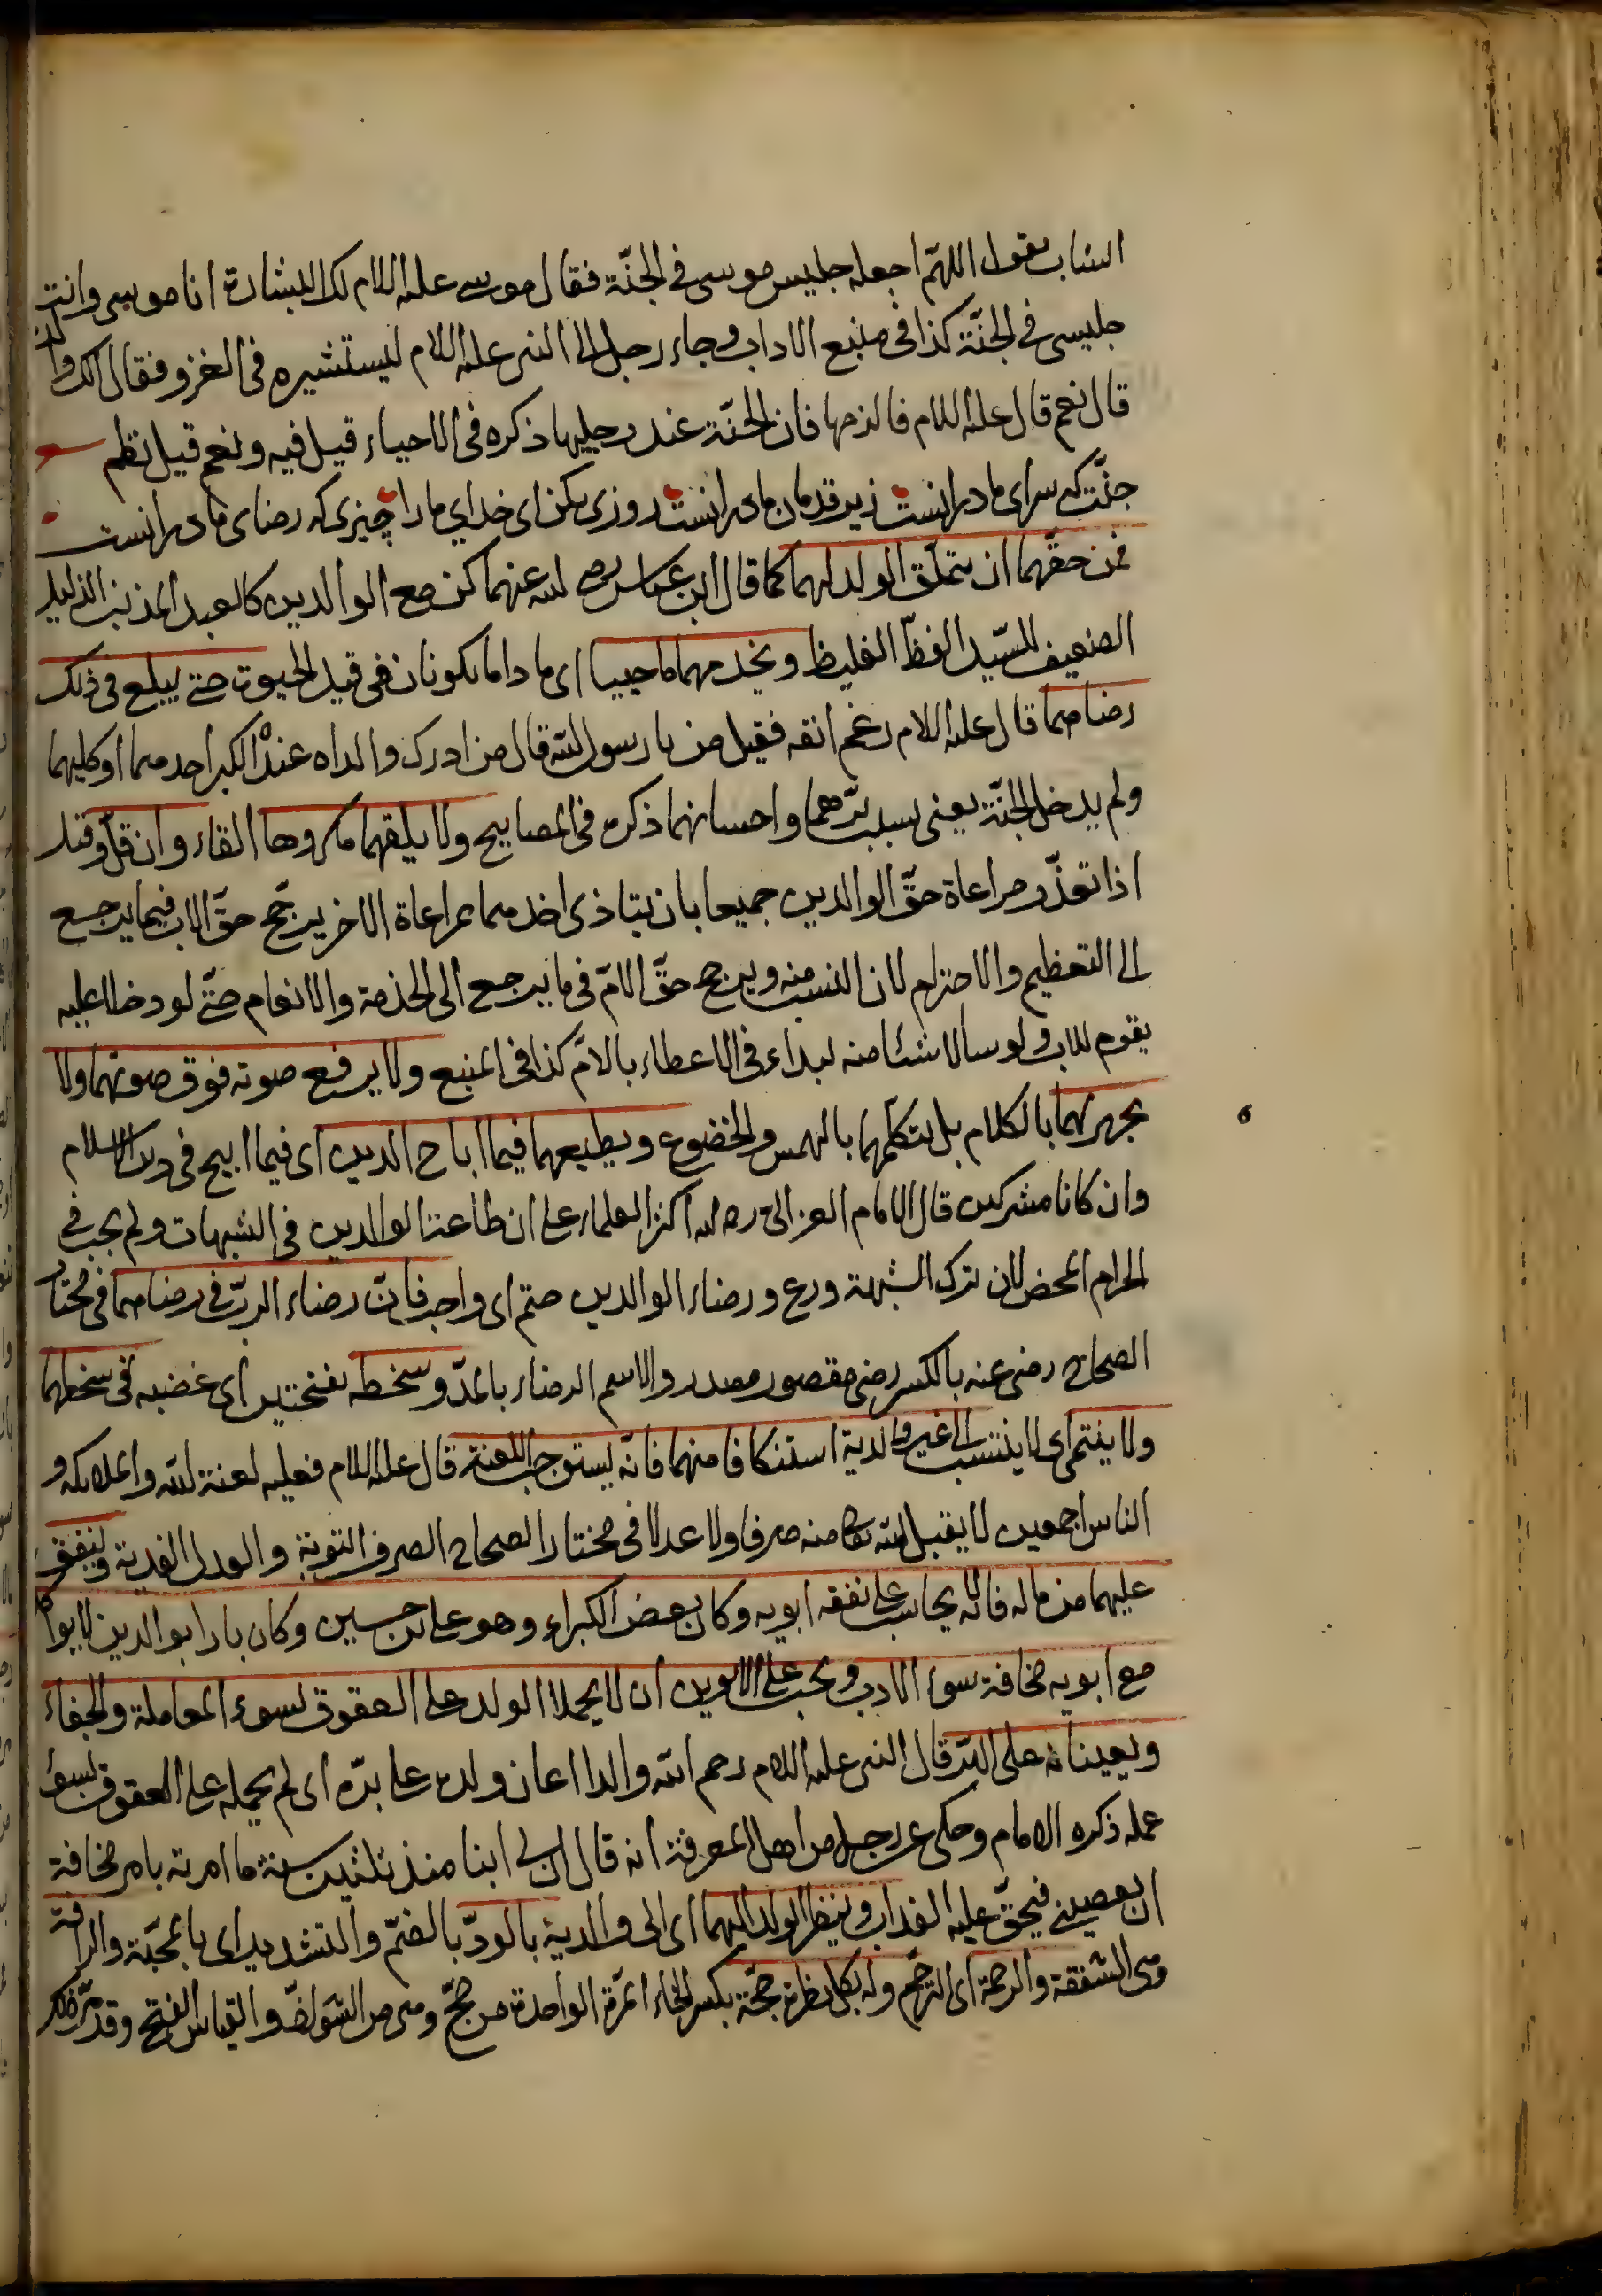 الشاب يقول اللهمّ اجعله جليس موسى فى الجنّة فقال موسى عليه اللام لك البشارة انا موسى وانت
جليسى فى الجنّة كذا فى منبع الاداب وجاء رجل الى النبى عليه اللام ليستشيره فى الغزو فقال الك والدة
قال نعم قال عليه اللام فالزمها فان الجنّة عند رجليها ذكره فى الاحياء قيل فيه ونعم قيل نظم
جنّت كه سراى مادرانست زير قدمان مادرانست روزى بكن اى خداي مارا چيزى كه رضاى مادرانست
فمن حقّهما ان يتملّق الولد لهما كما قال ابن عباس رضى لله عنهما كن مع الوالدين كالعبد المذنب الذليل
الضعيف للسّيد الفظّ الغليظ ويخدمهما ما حييا اى ما داما يكونان فى قيد الحيوت حتى يبلع فى ذلك
رضاهما قال عليه اللام رغم انفه فقيل من يا رسول الله قال من ادرك والداه عند الكبر احدهما او كليهما
ولم يدخل الجنّة يعنى بسبب برّهما واحسانهما ذكره فى المصابيح ولا يلقهما مكروها القاء وان قلّ وقيل
اذا تعذّر مراعاة حقّ الوالدين جميعا بان يتاذى احدهما بمراعاة الاخر يرجّح حقّ الاب فيما يرجع
الى التعظيم والاحترام لان النسب منه ويرجح حقّ الامّ فى ما يرجع الى الخذمة والانعام حتّى لو دخلا عليه
يقوم للاب ولو سألا شئا منه يبداء فى الاعطاء بالامّ كذا فى المنبع ولا يرفع صوته فوق صوتهما ولا
يجهر لهما بالكلام بل يتكلّمهما بالهمس والخضوع ويطيعهما فيما اباح الدين اى فيما ابيح فى دين الاسلام
وان كانا مشركين قال الامام الغزالى رحه الله اكثر العلماء على ان طاعة الوالدين فى الشبهات ولم يجب فى
الحرام المحض لان ترك الشبهة ورع ورضاء الوالدين حتم اى واجب فانّ رضاء الربّ فى رضاهما فى مختار
الصحاح رضى عنه بالكسر رضى مقصور مصدر والاسم الرضاء بالمدّ وسخطه بفتحتين اى غضبه فى سخطهما
ولا ينتمى اى لا ينتسب الى غير والدية استنكافا منهما فانّه يستوجب اللعنة قال عليه اللام فعليه لعنة الله والملائكه و
الناس اجمعين لا يقبل الله تعالى منه صرفا ولا عدلا فى مختار الصحاح الصرف التوبة والعدل الفدية وينفق
عليهما من ماله فانه لا يحاسب على نفقه ابويه وكان بعض الكبراء وهو على بن حسين وكان بارا بوالدين لا يواكل
مع ابويه مخافة سوء الادب ويجب على الابوين ان لا يحملا الولد على العقوق لسوء المعاملة والجفاء
ويعينانه على البرّ قال النبى عليه اللام رحم الله والدا اعان ولده على برّه اى لم يحمله على العقوق بسوء
عمله ذكره الامام وحكى عن رجل من اهل المعرفة انه قال ان لى ابنا منذ ثلثين سنة ما امرته بامر مخافة
ان يعصينى فيحقّ عليه العذاب وينظر الولد اليهما اى الى والدية بالودّ بالضمّ والتشديد اى بالمحبّة والرافة
وهى الشفقة والرحمة اى الترحّم وله بكل نظرة حجّة بكسر الحاء المرّة الواحدة من حجّ وهى من الشواذّ والقياس الفتح وقد مرّ ذلك